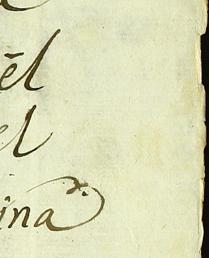 ēl
el
ina